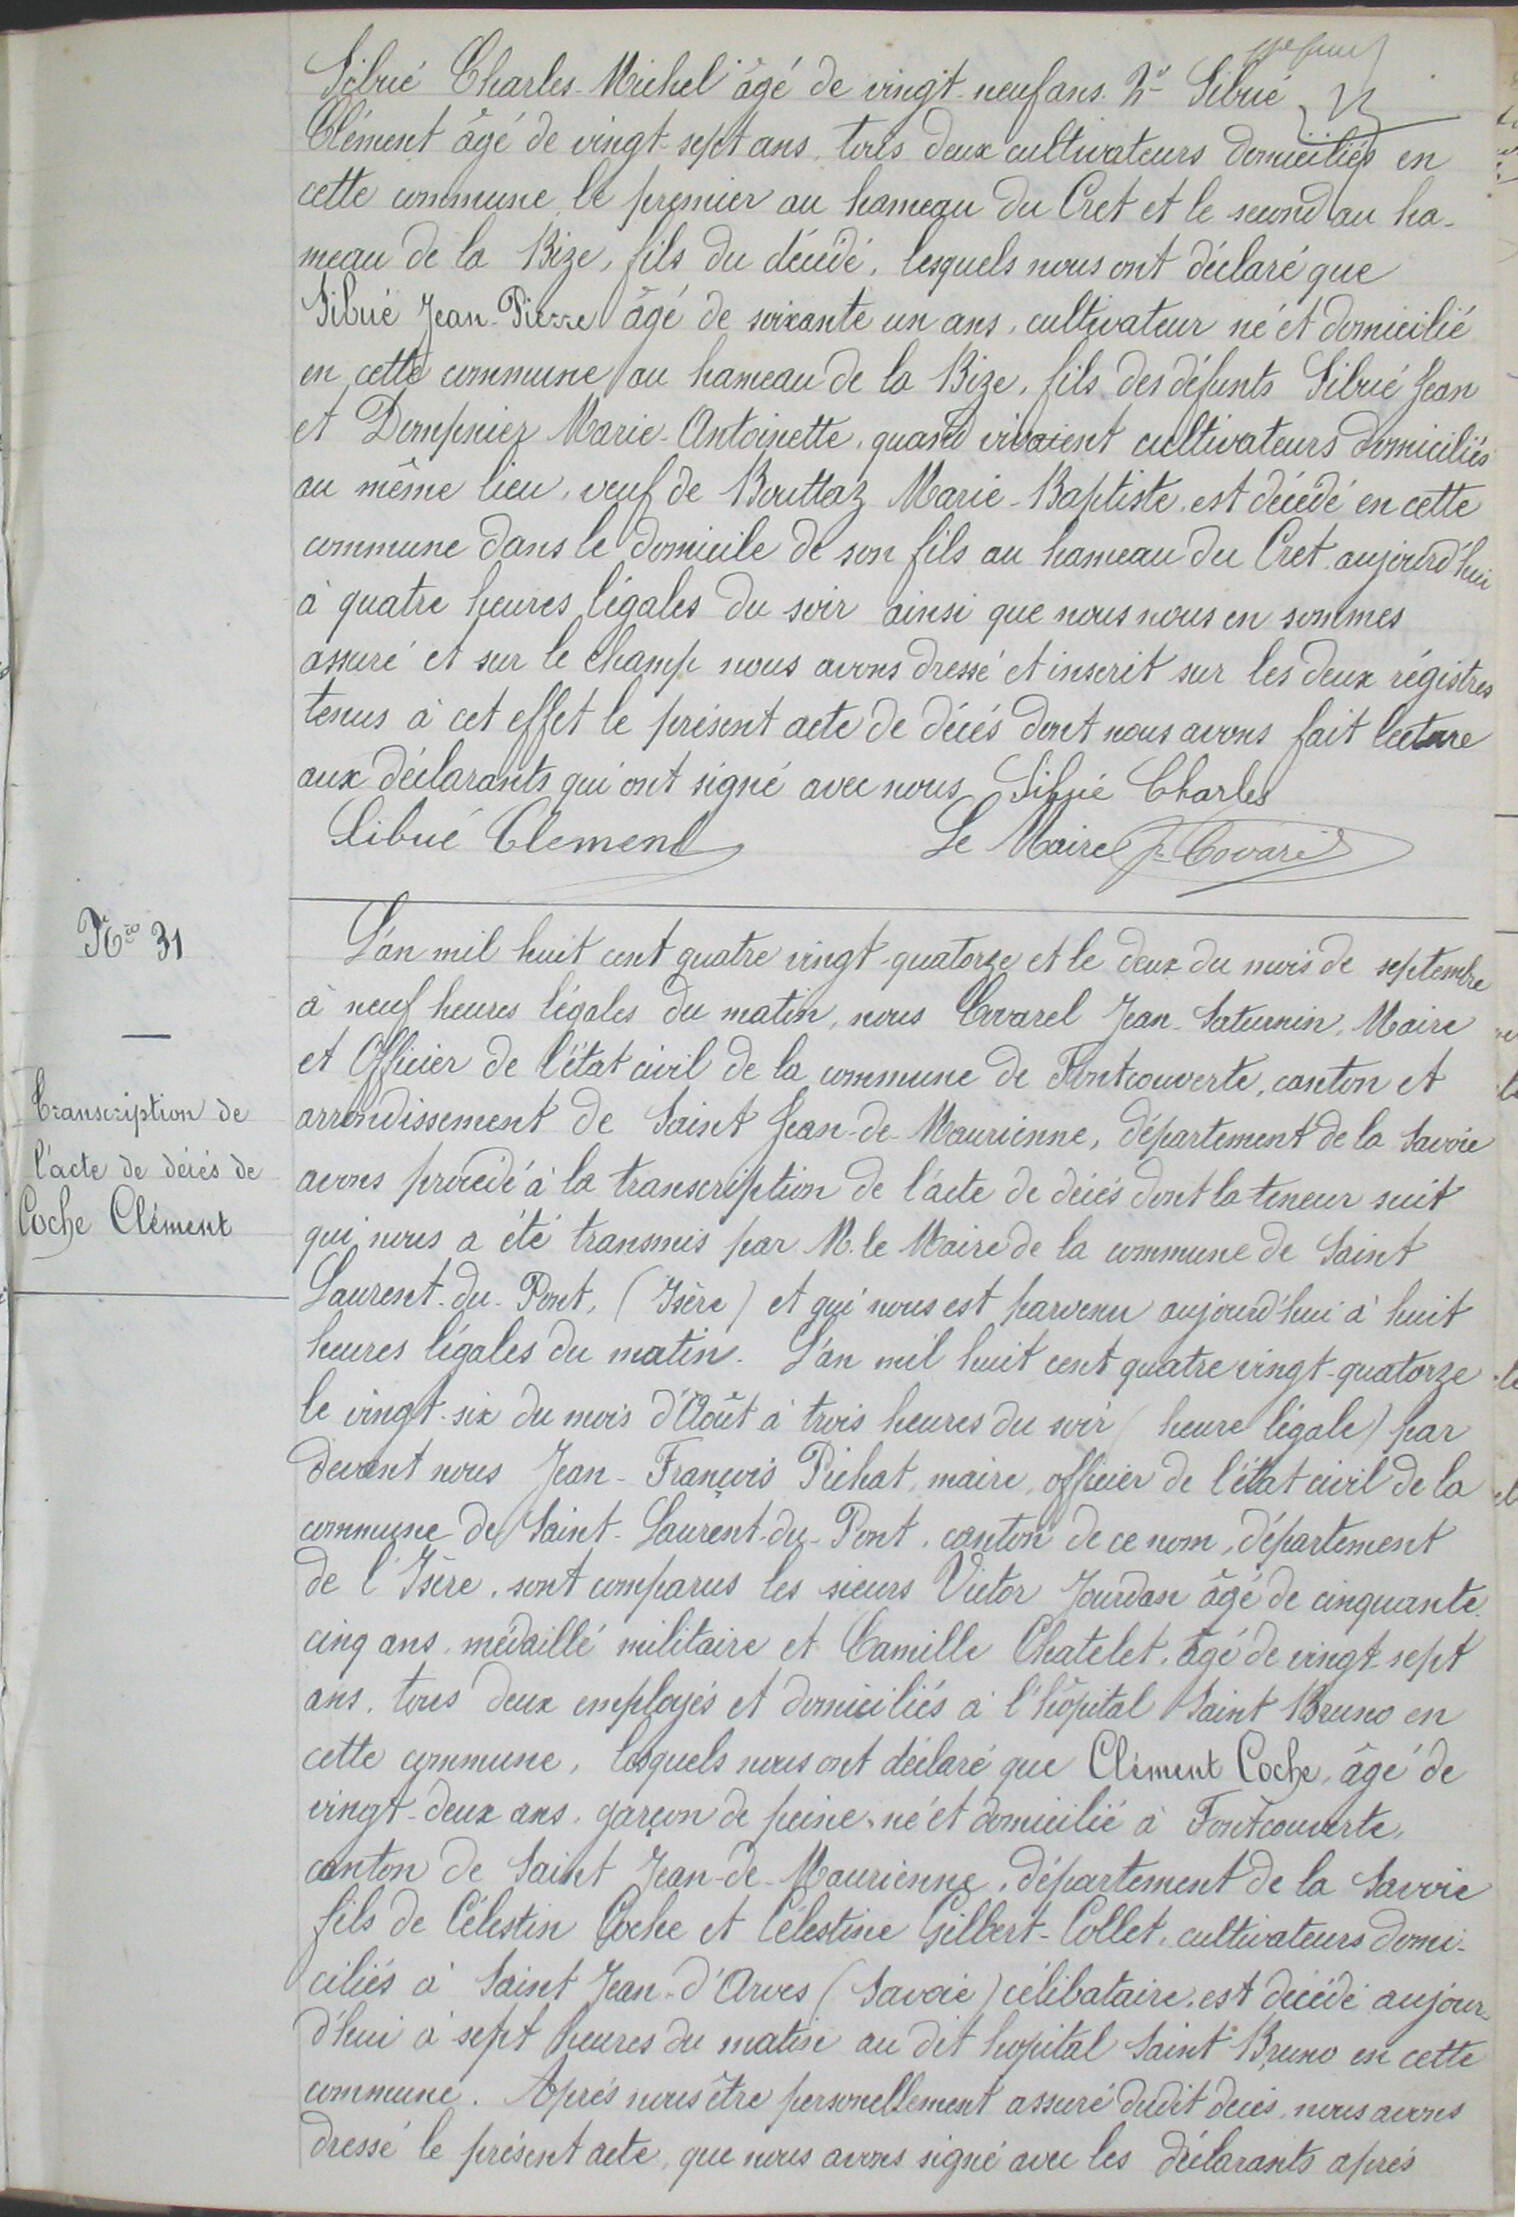 Sibué Charles-Michel âgé de vingt-neuf ans. 2° Sibué
Clément âgé de vingt-sept ans, tous deux cultivateurs domiciliés en
cette commune le premier au hameau du Cret et le second au ha-
meau de la Bize, fils du décédé, lesquels nous ont déclaré que
Sibué Jean-Pierre âgé de soixante un ans, cultivateur né et domicilié
en cette commune au hameau de la Bize, fils des défunts Sibué Jean
et Dompnier Marie-Antoinette, quand vivaient cultivateurs domiciliés
au même lieu, veuf de Bouttaz Marie-Baptiste, est décédé en cette
commune dans le domicile de son fils au hameau du Cret aujourd'hui
à quatre heures légales du soir ainsi que nous nous en sommes
assuré et sur le champ nous avons dressé et inscrit sur les deux régistres
tenus à cet effet le présent acte de décés dont nous avons fait lecture
aux déclarants qui ont signé avec nous Sibué Charles
Sibué Clement Le Maire J. Covarel
N° 31
Transcription de
l'acte de décés de
Coche Clément
L'an mil huit cent quatre vingt-quatorze et le deux du mois de septembre
à neuf heures légales du matin, nous Covarel Jean-Saturnin, Maire
et Officier de l'état civil de la commune de Fontcouverte, canton et
arrondissement de Saint Jean-de-Maurienne, département de la Savoie
avons procédé à la transcription de l'acte de décés dont la teneur suit
qui nous a été transmis par M. le Maire de la commune de Saint
Laurent-du-Pont, (Isère) et qui nous est parvenu aujourd'hui à huit
heures légales du matin. L'an mil huit cent quatre vingt-quatorze
le vingt-six du mois d'Août à trois heures du soir (heure légale) par
devant nous Jean-François Pichat, maire, officier de l'état civil de la
commune de Saint-Laurent-du-Pont, canton de ce nom, département
de l'Isère, sont comparus les sieurs Victor Jourdan âgé de cinquante
cinq ans, médaillé militaire et Camille Chatelet, âgé de vingt-sept
ans, tous deux employés et domiciliés à l'hôpital Saint Bruno en
cette commune, lesquels nous ont déclaré que Clément Coche, âgé de
vingt-deux ans, garçon de peine, né et domicilié à Fontcouverte,
canton de Saint Jean-de-Maurienne, département de la Savoie
fils de Célestin Coche et Célestine Gilbert-Collet, cultivateurs domi-
ciliés à Saint Jean-d'Arves (Savoie) célibataire, est décédé aujour-
d'hui à sept heures du matin au dit hopital Saint Bruno en cette
commune. Aprés nous être personellement assuré dudit décés, nous avons
dressé le présent acte, que nous avons signé avec les déclarants aprés